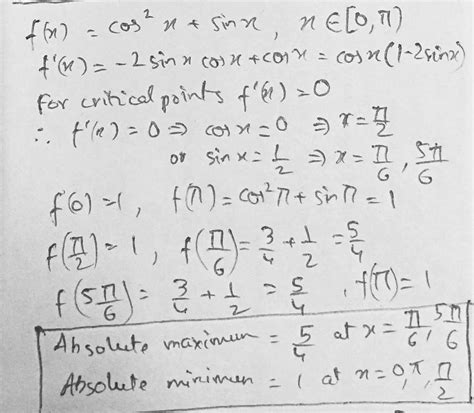 f(x) = cos² x + sinx, x ∈ [0, π)
f'(x) = -2 sin x cosx + cosx = cosx(1-2sinx)
for critical points f'(x) = 0
∴ f'(x) = 0 ⇒ cosx = 0 ⇒ x = π/2
or sinx = 1/2 ⇒ x = π/6, 5π/6
f(0) = 1, f(π) = cos²π + sinπ = 1
f(π/2) = 1, f(π/6) = 3/4 + 1/2 = 5/4
f(5π/6) = 3/4 + 1/2 = 5/4, f(π) = 1
Absolute maximum = 5/4 at x = π/6, 5π/6
Absolute minimum = 1 at x = 0, π, π/2